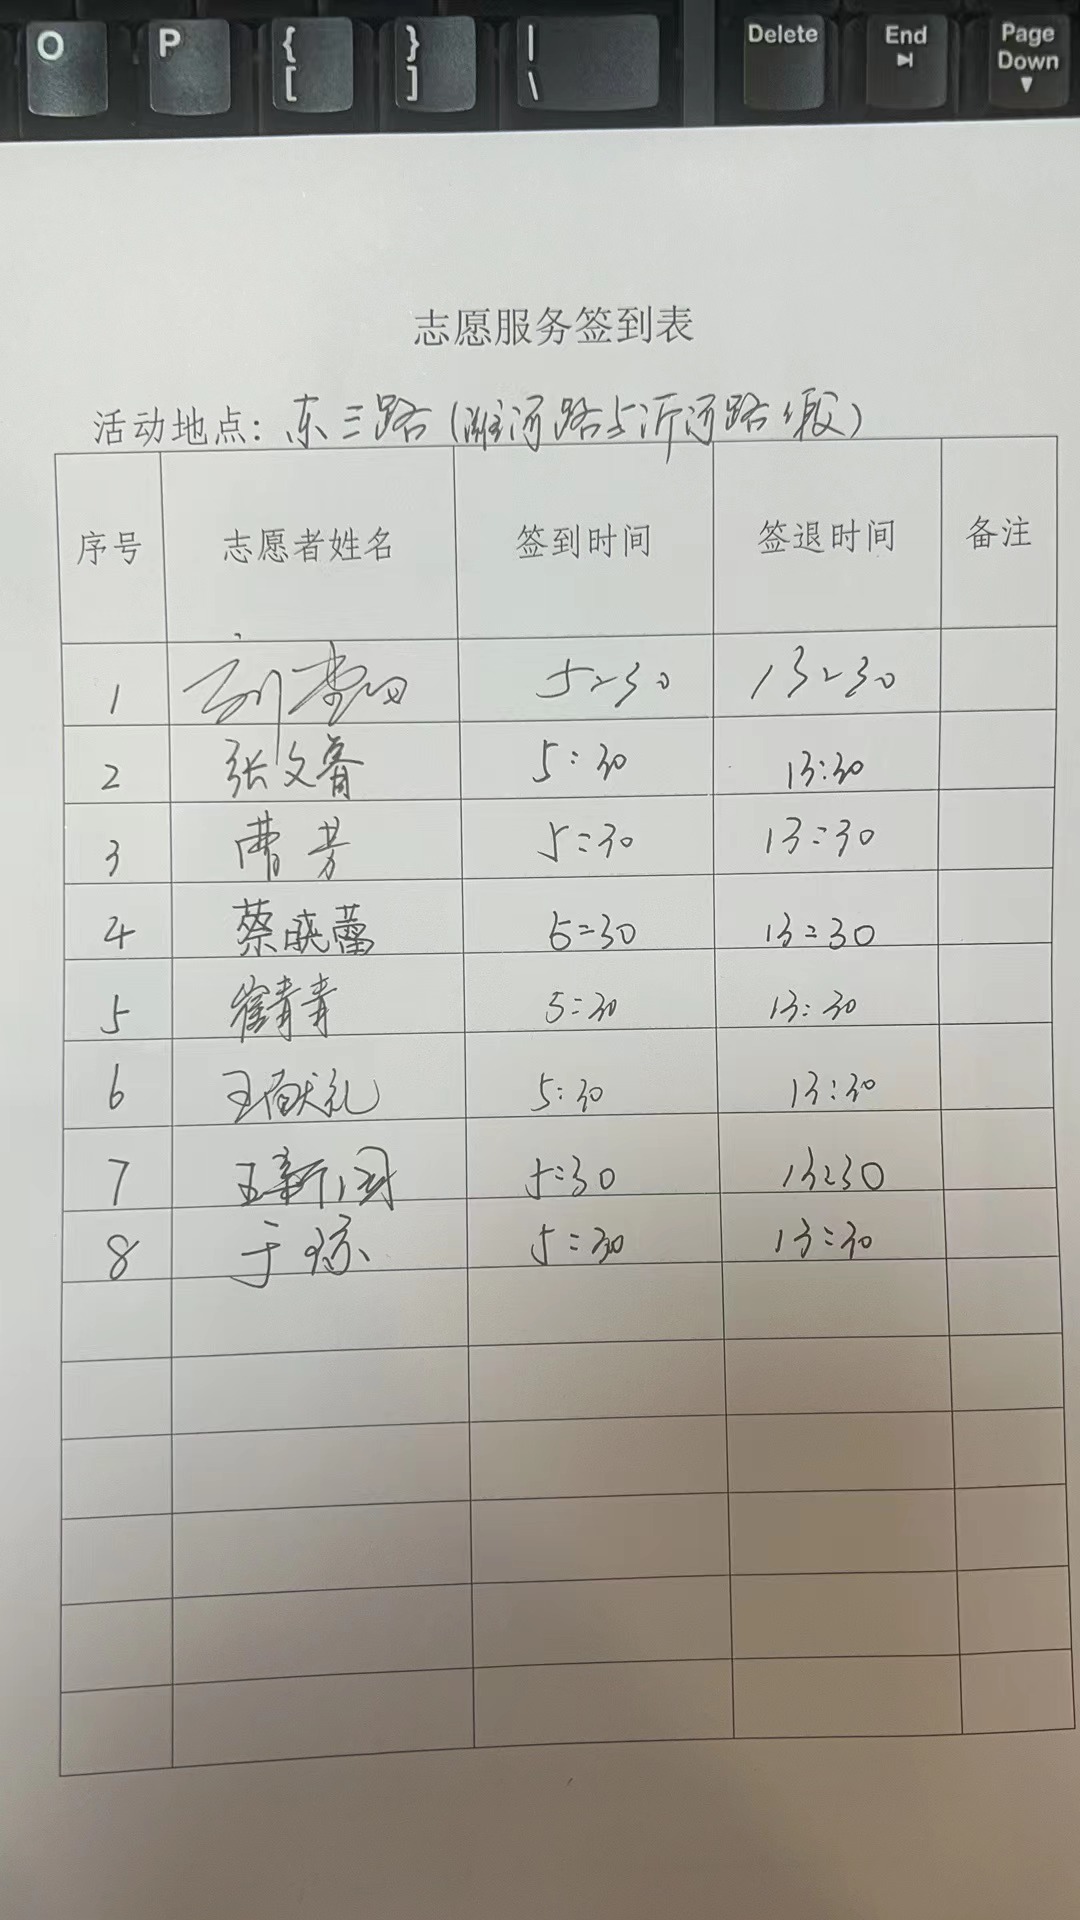 O P { [ } ] | \ Delete End Page Down
志愿服务签到表
活动地点: 东三路(潍河路与沂河路段)
序号 志愿者姓名 签到时间 签退时间 备注
1 刘 5:30 13:30
2 张文睿 5:30 13:30
3 曹芳 5:30 13:30
4 蔡晓蕾 5:30 13:30
5 崔青青 5:30 13:30
6 王献礼 5:30 13:30
7 王新国 5:30 13:30
8 于琼 5:30 13:30